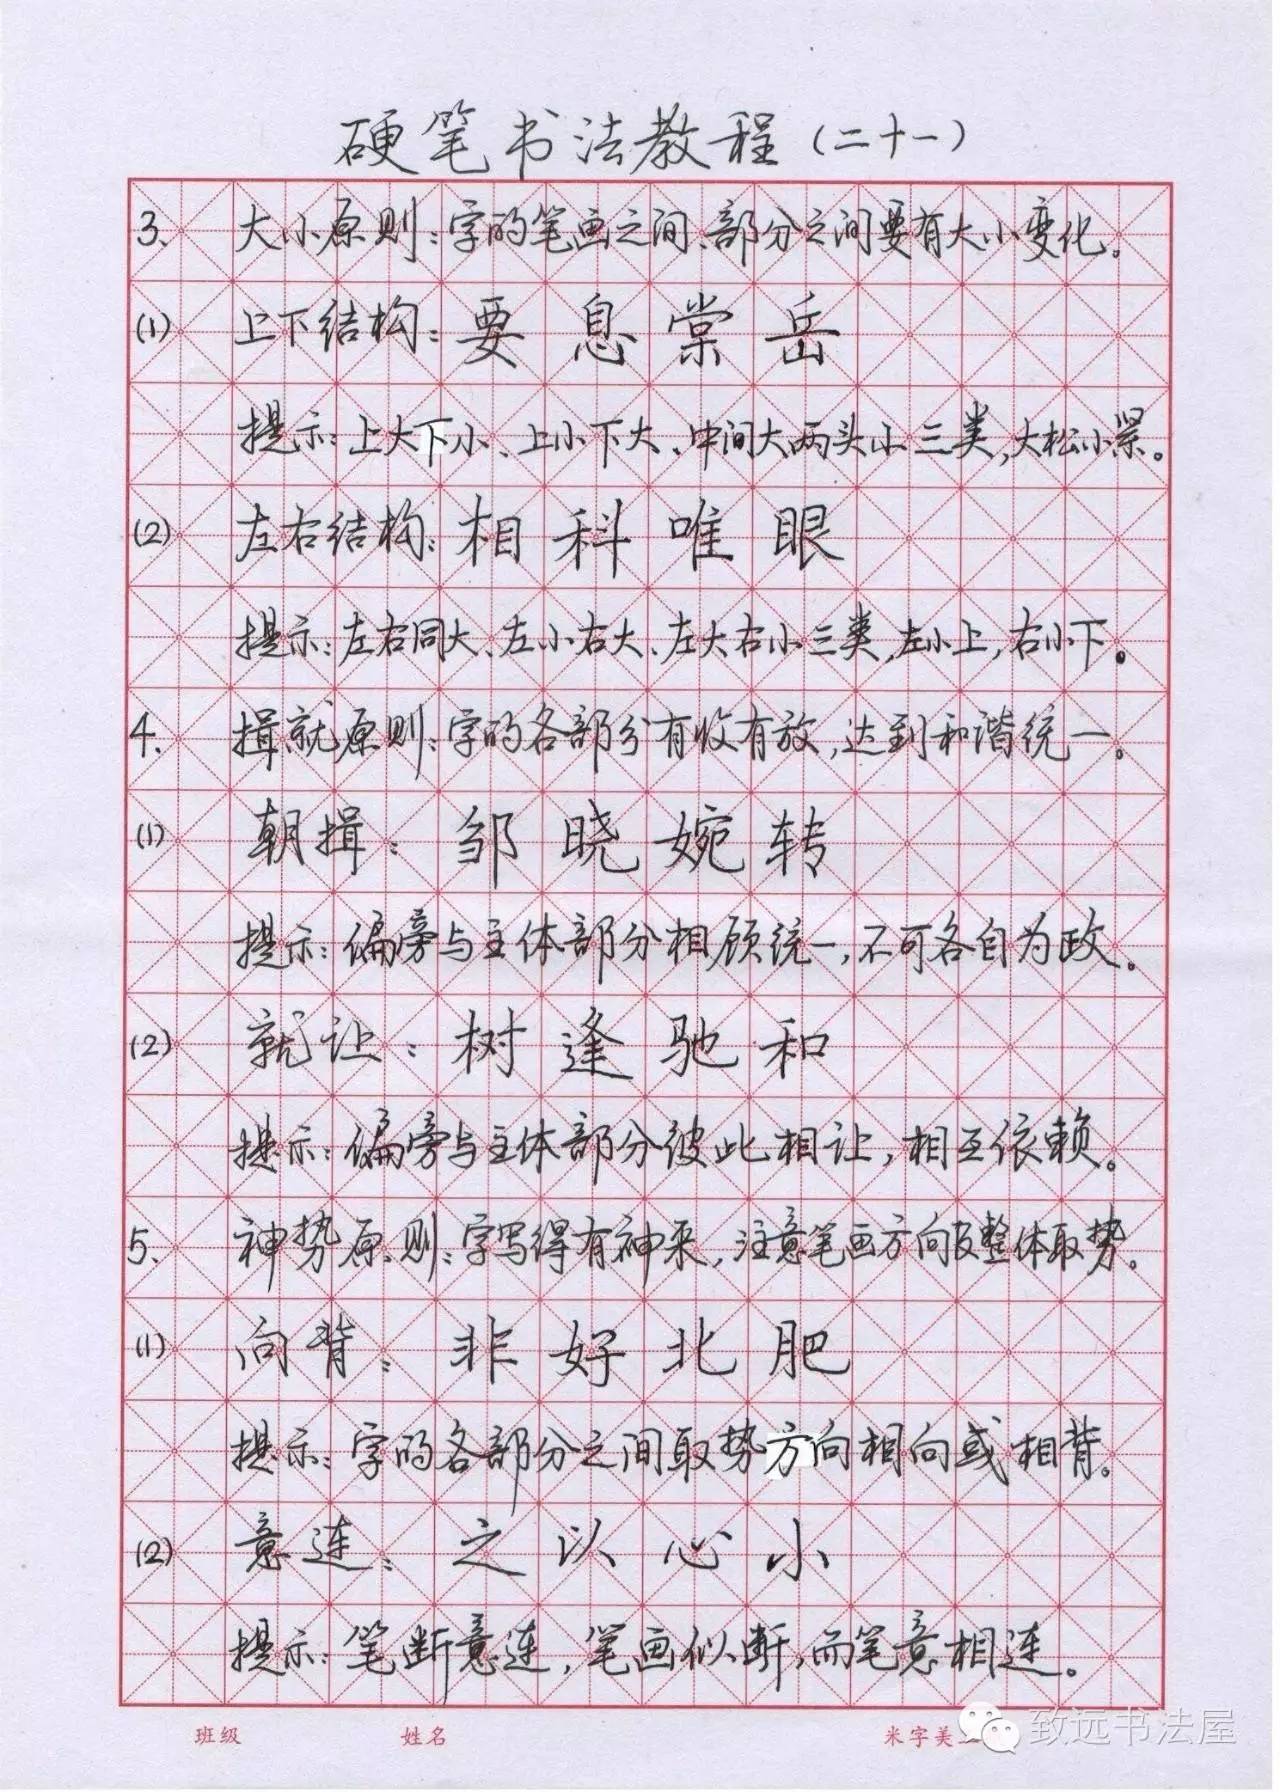 硬笔书法教程(二十一)
3、大小原则:字的笔画之间、部分之间要有大小变化。
(1)上下结构:要息棠岳
提示:上大下小、上小下大、中间大两头小三类,大松小紧。
(2)左右结构:相科唯眼
提示:左右同大、左小右大、左大右小三类,左小上,右小下。
4、揖就原则:字的各部分有收有放,达到和谐统一。
(1)朝揖:邹晓婉转
提示:偏旁与主体部分相顾统一,不可各自为政。
(2)就让:树逢驰和
提示:偏旁与主体部分彼此相让,相互依赖。
5、神势原则:字写得有神来,注意笔画方向及整体取势。
(1)向背:非好北肥
提示:字的各部分之间取势方向相向或相背。
(2)意连:之以心小
提示:笔断意连,笔画似断,而笔意相连。
班级 姓名 米字美
致远书法屋